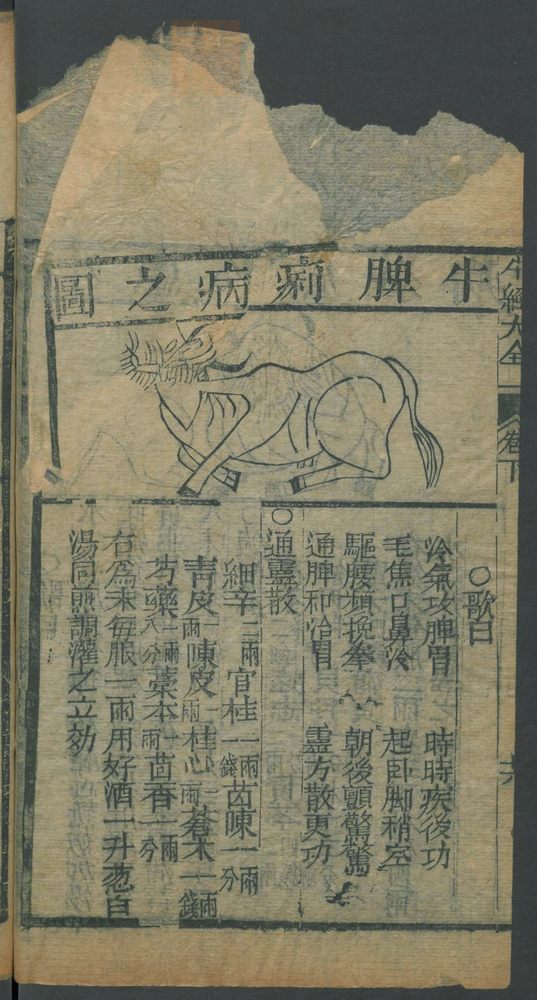 牛經大全
卷下
牛脾痢病之圖
○歌曰
冷氣攻脾胃 時時疾後功
毛焦口鼻冷 起卧脚稍空
驅腰頻挽拳 朝後顫驚
通脾和治胃 靈方散更功
○通靈散
細辛二兩官桂一兩一錢茴陳一兩一分
青皮一兩陳皮一兩桂心一兩蒼朮一兩一錢
芍藥一兩八分藁本十兩茴香一兩一分
右為末每服二兩用好酒一升葱白
湯同煎調灌之立効